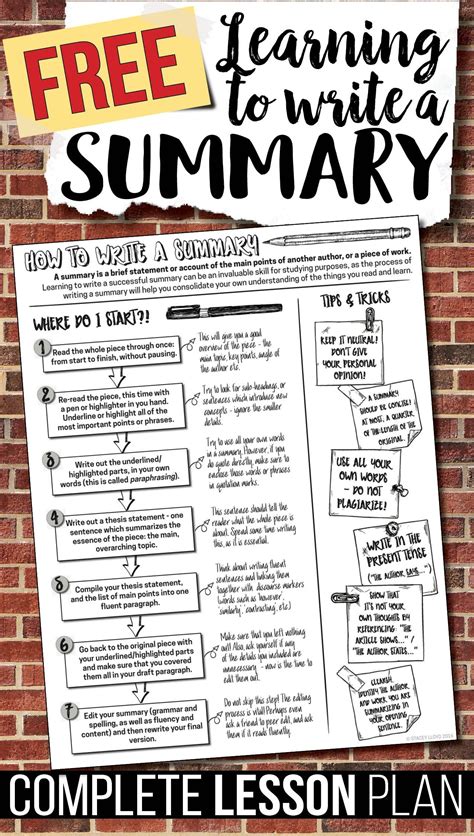 FREE
Learning
to write a
SUMMARY
HOW TO WRITE A SUMMARY
A summary is a brief statement or account of the main points of another author, or a piece of work.
Learning to write a successful summary can be an invaluable skill for studying purposes, as the process of
writing a summary will help you consolidate your own understanding of the things you read and learn.
WHERE DO I START?!
1
Read the whole piece through once:
from start to finish, without pausing.
This will give you a good
overview of the piece - the
main topic, key points, angle of
the author etc.
2
Re-read the piece, this time with
a pen or highlighter in you hand.
Underline or highlight all of the
most important points or phrases.
Try to look for sub-headings, or
sentences which introduce new
concepts - ignore the smaller
details.
3
Write out the underlined/
highlighted parts, in your own
words (this is called paraphrasing).
Try to use all your own words
in a summary. However, if you
do quote directly, make sure to
enclose those words or phrases
in quotation marks.
4
Write out a thesis statement - one
sentence which summarizes the
essence of the piece: the main,
overarching topic.
This sentence should tell the
reader what the whole piece is
about. Spend some time writing
this, as it is essential.
5
Compile your thesis statement,
and the list of main points into one
fluent paragraph.
Think about writing fluent
sentences and linking them
together with discourse markers
(words such as however,
similarly, contrasting, etc.)
6
Go back to the original piece with
your underlined/highlighted parts
and make sure that you covered
them all in your draft paragraph.
Make sure that you left nothing
out! Also, ask yourself if any
of the details you included are
unnecessary - now is the time to
edit them out.
7
Edit your summary (grammar and
spelling, as well as fluency and
content) and then rewrite your final
version.
Do not skip this step! The editing
process is vital! Perhaps even
ask a friend to peer edit, and ask
them what they think.
TIPS & TRICKS
KEEP IT NEUTRAL!
DON'T GIVE
YOUR PERSONAL
OPINION!
A SUMMARY
SHOULD BE CONCISE:
AT MOST, A QUARTER
OF THE LENGTH OF THE
ORIGINAL.
USE ALL YOUR
OWN WORDS
- DO NOT
PLAGIARIZE!
WRITE IN THE
PRESENT TENSE
("THE AUTHOR SAYS...")
SHOW THAT
IT'S NOT YOUR
OWN THOUGHTS BY
REFERENCING: "THE
ARTICLE SHOWS..."
"THE AUTHOR STATES..."
CLEARLY
IDENTIFY THE AUTHOR
AND WORK YOU ARE
SUMMARIZING IN
YOUR OPENING
SENTENCE.
© STACEY LLOYD
COMPLETE LESSON PLAN